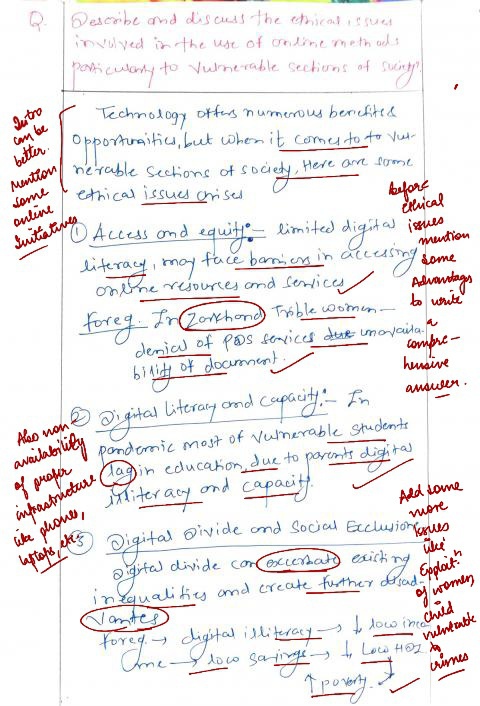 Q. Describe and discuss the ethical issues
involved in the use of online methods
particularly to vulnerable sections of society?
Intro
can be
better.
Mention
some
online
Initiatives
Technology offers numerous benefits
opportunities, but when it comes to to vul-
nerable sections of society, Here are some
ethical issues arises
before
ethical
issues
mention
some
Advantages
to write
a
compre-
hensive
answer.
① Access and equity:- limited digital
literacy, may face barriers in accessing
online resources and services
foreg. In Zarkhand Trible women-
denial of PDS services due unavaila-
bility of document.
② Digital Literacy and Capacity:- In
pandemic most of vulnerable students
lag in education, due to parents digital
illiteracy and capacity.
Also non-
availability
of proper
infrastructure
like phones,
laptops, etc
③ Digital Divide and Social Exclusion
Digital divide can excerbate existing
inequalities and create further disad-
vantes
foreg → digital illiteracy → ↓ low inco
me → low savings → ↓ Low HDI
↑ poverty.
Add some
more
issues
like
Exploitn
of women,
child
vulnerable
to
crimes